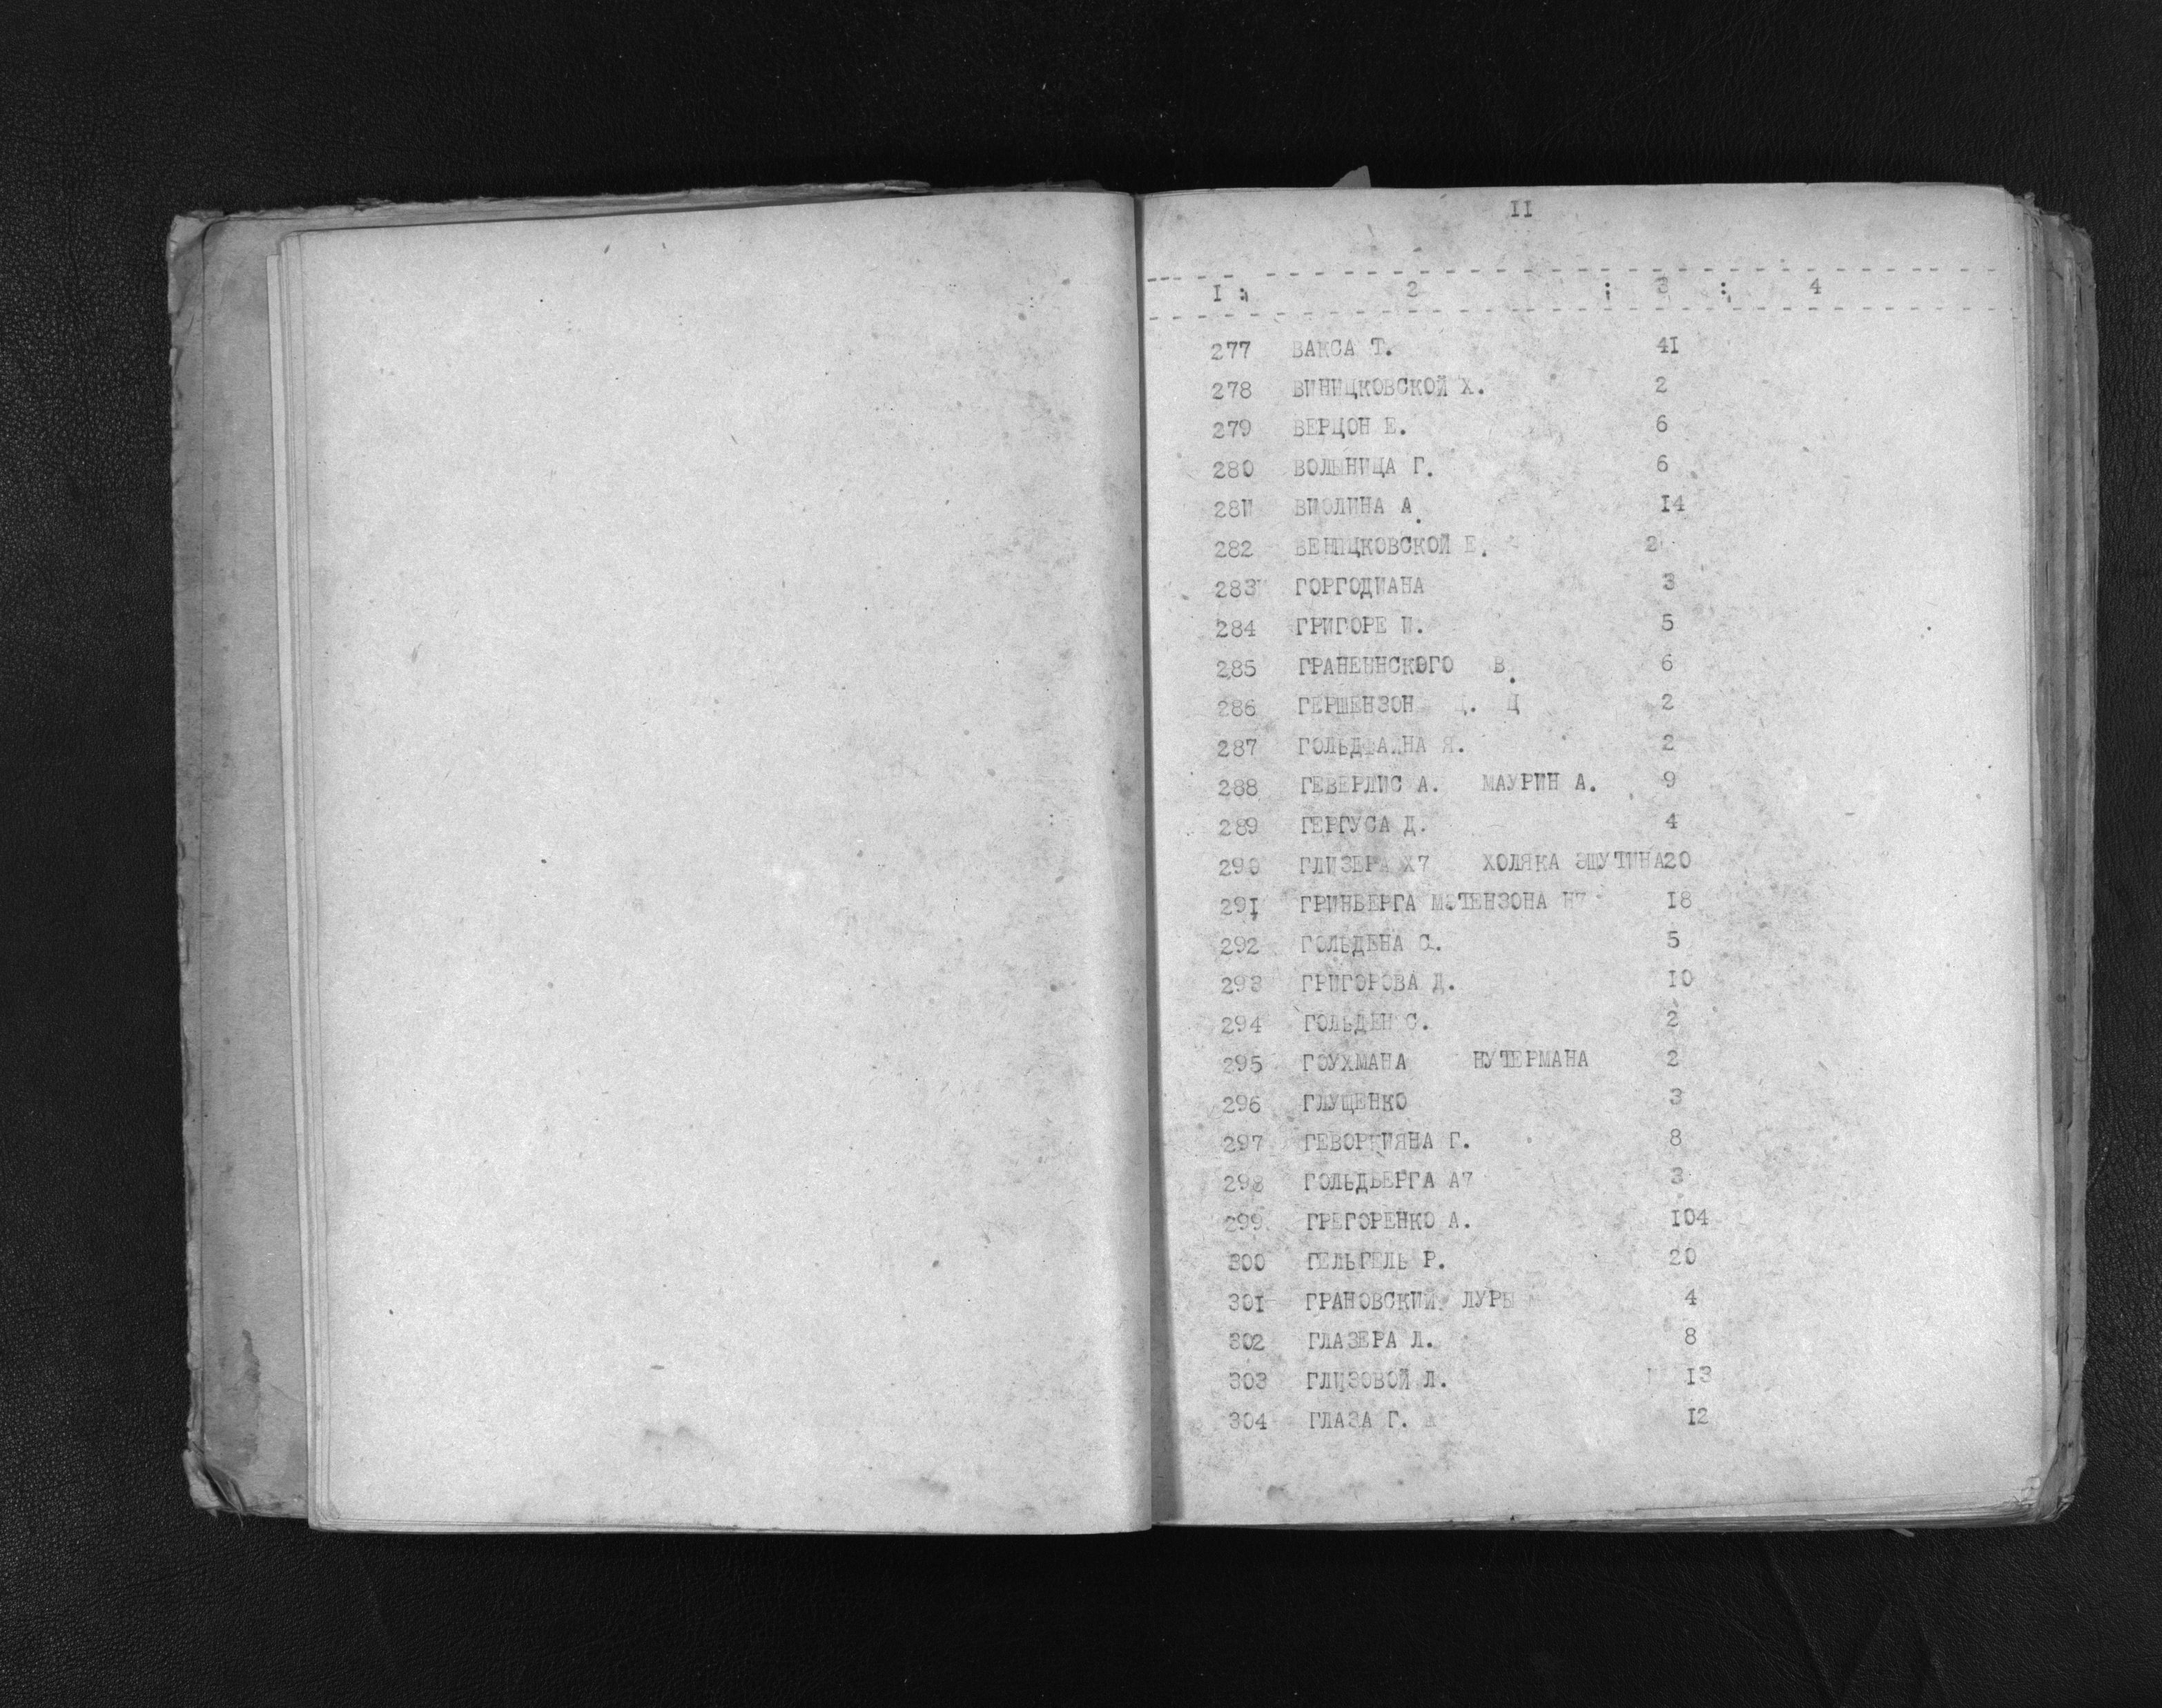 II
I : 2 : 3 : 4
277 ВАКСА Т. 4I
278 ВИНИЦКОВСКОЙ Х. 2
279 ВЕРЦОН Е. 6
280 ВОЛЫНИЦА Г. 6
28И ВИОЛИНА А. I4
282 ВЕНИЦКОВСКОЙ Е. 2
283 ГОРГОДИАНА 3
284 ГРИГОРЕ И. 5
285 ГРАНЕВНСКОГО В. 6
286 ГЕРШЕНЗОН Ц. Ц 2
287 Я. 2
288 ГЕВЕРЛИС А. МАУРИН А. 9
289 ГЕРГУСА Д. 4
290 ГЛИЗЕРА Х7 ХОЛЯКА ЭШУТИНА20
29I ГРИНБЕРГА МОТЕНЗОНА Н7 I8
292 ГОЛЬДЕНА С. 5
293 ГРИГОРОВА Д. I0
294 ГОЛЬДЕН С. 2
295 ГОУХМАНА НУТЕРМАНА 2
296 ГЛУЩЕНКО 3
297 ГЕВОРГИЯНА Г. 8
298 ГОЛЬДБЕРГА А7 3
299 ГРЕГОРЕНКО А. I04
300 ГЕЛЬГЕЛЬ Р. 20
30I ГРАНОВСКИЙ ЛУРЫ 4
302 ГЛАЗЕРА Л. 8
303 ГЛИЗОВОЙ Л. I3
304 ГЛАЗА Г. I2